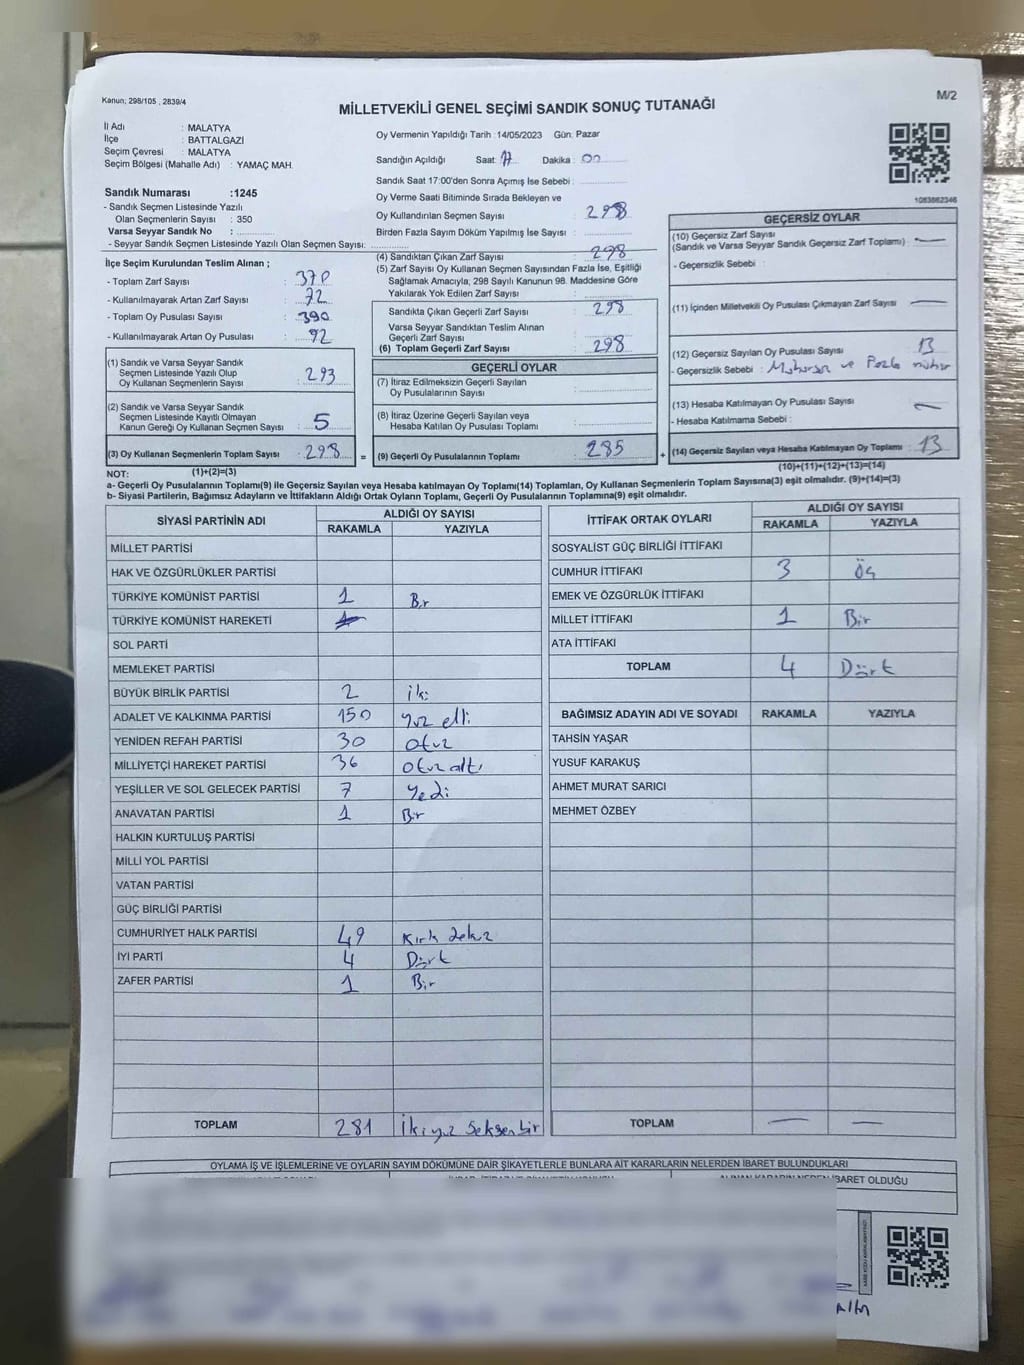 Kanun; 298/105 , 2839/4
M/2
MİLLETVEKİLİ GENEL SEÇİMİ SANDIK SONUÇ TUTANAĞI
İl Adı : MALATYA
İlçe : BATTALGAZİ
Seçim Çevresi : MALATYA
Seçim Bölgesi (Mahalle Adı) : YAMAÇ MAH.
Sandık Numarası :1245
- Sandık Seçmen Listesinde Yazılı
Olan Seçmenlerin Sayısı : 350
Varsa Seyyar Sandık No :
- Seyyar Sandık Seçmen Listesinde Yazılı Olan Seçmen Sayısı:
Oy Vermenin Yapıldığı Tarih :14/05/2023 Gün: Pazar
Sandığın Açıldığı Saat: 17 Dakika : 00
Sandık Saat 17:00'den Sonra Açımış İse Sebebi :
Oy Verme Saati Bitiminde Sırada Bekleyen ve
Oy Kullandırılan Seçmen Sayısı : 298
Birden Fazla Sayım Döküm Yapılmış İse Sayısı :
1083862346
İlçe Seçim Kurulundan Teslim Alınan ;
- Toplam Zarf Sayısı : 370
- Kullanılmayarak Artan Zarf Sayısı : 72
- Toplam Oy Pusulası Sayısı : 390
- Kullanılmayarak Artan Oy Pusulası : 92
(1) Sandık ve Varsa Seyyar Sandık
Seçmen Listesinde Yazılı Olup
Oy Kullanan Seçmenlerin Sayısı : 293
(2) Sandık ve Varsa Seyyar Sandık
Seçmen Listesinde Kayıtlı Olmayan
Kanun Gereği Oy Kullanan Seçmen Sayısı : 5
(3) Oy Kullanan Seçmenlerin Toplam Sayısı : 298
(4) Sandıktan Çıkan Zarf Sayısı : 298
(5) Zarf Sayısı Oy Kullanan Seçmen Sayısından Fazla İse, Eşitliği
Sağlamak Amacıyla; 298 Sayılı Kanunun 98. Maddesine Göre
Yakılarak Yok Edilen Zarf Sayısı :
Sandıkta Çıkan Geçerli Zarf Sayısı : 298
Varsa Seyyar Sandıktan Teslim Alınan
Geçerli Zarf Sayısı :
(6) Toplam Geçerli Zarf Sayısı : 298
GEÇERLİ OYLAR
(7) İtiraz Edilmeksizin Geçerli Sayılan
Oy Pusulalarının Sayısı :
(8) İtiraz Üzerine Geçerli Sayılan veya
Hesaba Katılan Oy Pusulası Toplamı :
= (9) Geçerli Oy Pusulalarının Toplamı : 285
GEÇERSİZ OYLAR
(10) Geçersiz Zarf Sayısı
(Sandık ve Varsa Seyyar Sandık Geçersiz Zarf Toplamı) : —
- Geçersizlik Sebebi :
(11) İçinden Milletvekili Oy Pusulası Çıkmayan Zarf Sayısı : —
(12) Geçersiz Sayılan Oy Pusulası Sayısı : 13
- Geçersizlik Sebebi : Mühürsüz ve Fazla mühür
(13) Hesaba Katılmayan Oy Pusulası Sayısı : —
- Hesaba Katılmama Sebebi :
+ (14) Geçersiz Sayılan veya Hesaba Katılmayan Oy Toplamı : 13
NOT: (1)+(2)=(3)
(10)+(11)+(12)+(13)=(14)
a- Geçerli Oy Pusulalarının Toplamı(9) ile Geçersiz Sayılan veya Hesaba katılmayan Oy Toplamı(14) Toplamları, Oy Kullanan Seçmenlerin Toplam Sayısına(3) eşit olmalıdır. (9)+(14)=(3)
b- Siyasi Partilerin, Bağımsız Adayların ve İttifakların Aldığı Ortak Oyların Toplamı, Geçerli Oy Pusulalarının Toplamına(9) eşit olmalıdır.
SİYASİ PARTİNİN ADI ALDIĞI OY SAYISI
RAKAMLA YAZIYLA
MİLLET PARTİSİ
HAK VE ÖZGÜRLÜKLER PARTİSİ
TÜRKİYE KOMÜNİST PARTİSİ 1 Bir
TÜRKİYE KOMÜNİST HAREKETİ
SOL PARTİ
MEMLEKET PARTİSİ
BÜYÜK BİRLİK PARTİSİ 2 iki
ADALET VE KALKINMA PARTİSİ 150 Yüz elli
YENİDEN REFAH PARTİSİ 30 Otuz
MİLLİYETÇİ HAREKET PARTİSİ 36 Otuz altı
YEŞİLLER VE SOL GELECEK PARTİSİ 7 Yedi
ANAVATAN PARTİSİ 1 Bir
HALKIN KURTULUŞ PARTİSİ
MİLLİ YOL PARTİSİ
VATAN PARTİSİ
GÜÇ BİRLİĞİ PARTİSİ
CUMHURİYET HALK PARTİSİ 49 Kırk dokuz
İYİ PARTİ 4 Dört
ZAFER PARTİSİ 1 Bir
TOPLAM 281 İkiyüz Seksenbir
İTTİFAK ORTAK OYLARI ALDIĞI OY SAYISI
RAKAMLA YAZIYLA
SOSYALİST GÜÇ BİRLİĞİ İTTİFAKI
CUMHUR İTTİFAKI 3 Üç
EMEK VE ÖZGÜRLÜK İTTİFAKI
MİLLET İTTİFAKI 1 Bir
ATA İTTİFAKI
TOPLAM 4 Dört
BAĞIMSIZ ADAYIN ADI VE SOYADI RAKAMLA YAZIYLA
TAHSİN YAŞAR
YUSUF KARAKUŞ
AHMET MURAT SARICI
MEHMET ÖZBEY
TOPLAM — —
OYLAMA İŞ VE İŞLEMLERİNE VE OYLARIN SAYIM DÖKÜMÜNE DAİR ŞİKAYETLERLE BUNLARA AİT KARARLARIN NELERDEN İBARET BULUNDUKLARI
ALINAN KARARIN NEDEN İBARET OLDUĞU